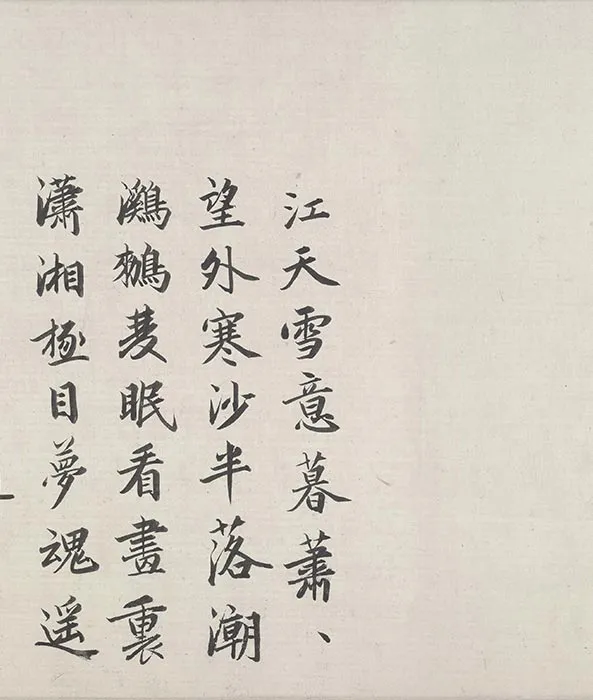 江天雪意暮蕭、
望外寒沙半落潮
鸂鶒眠看畫裏
瀟湘極目夢魂遥